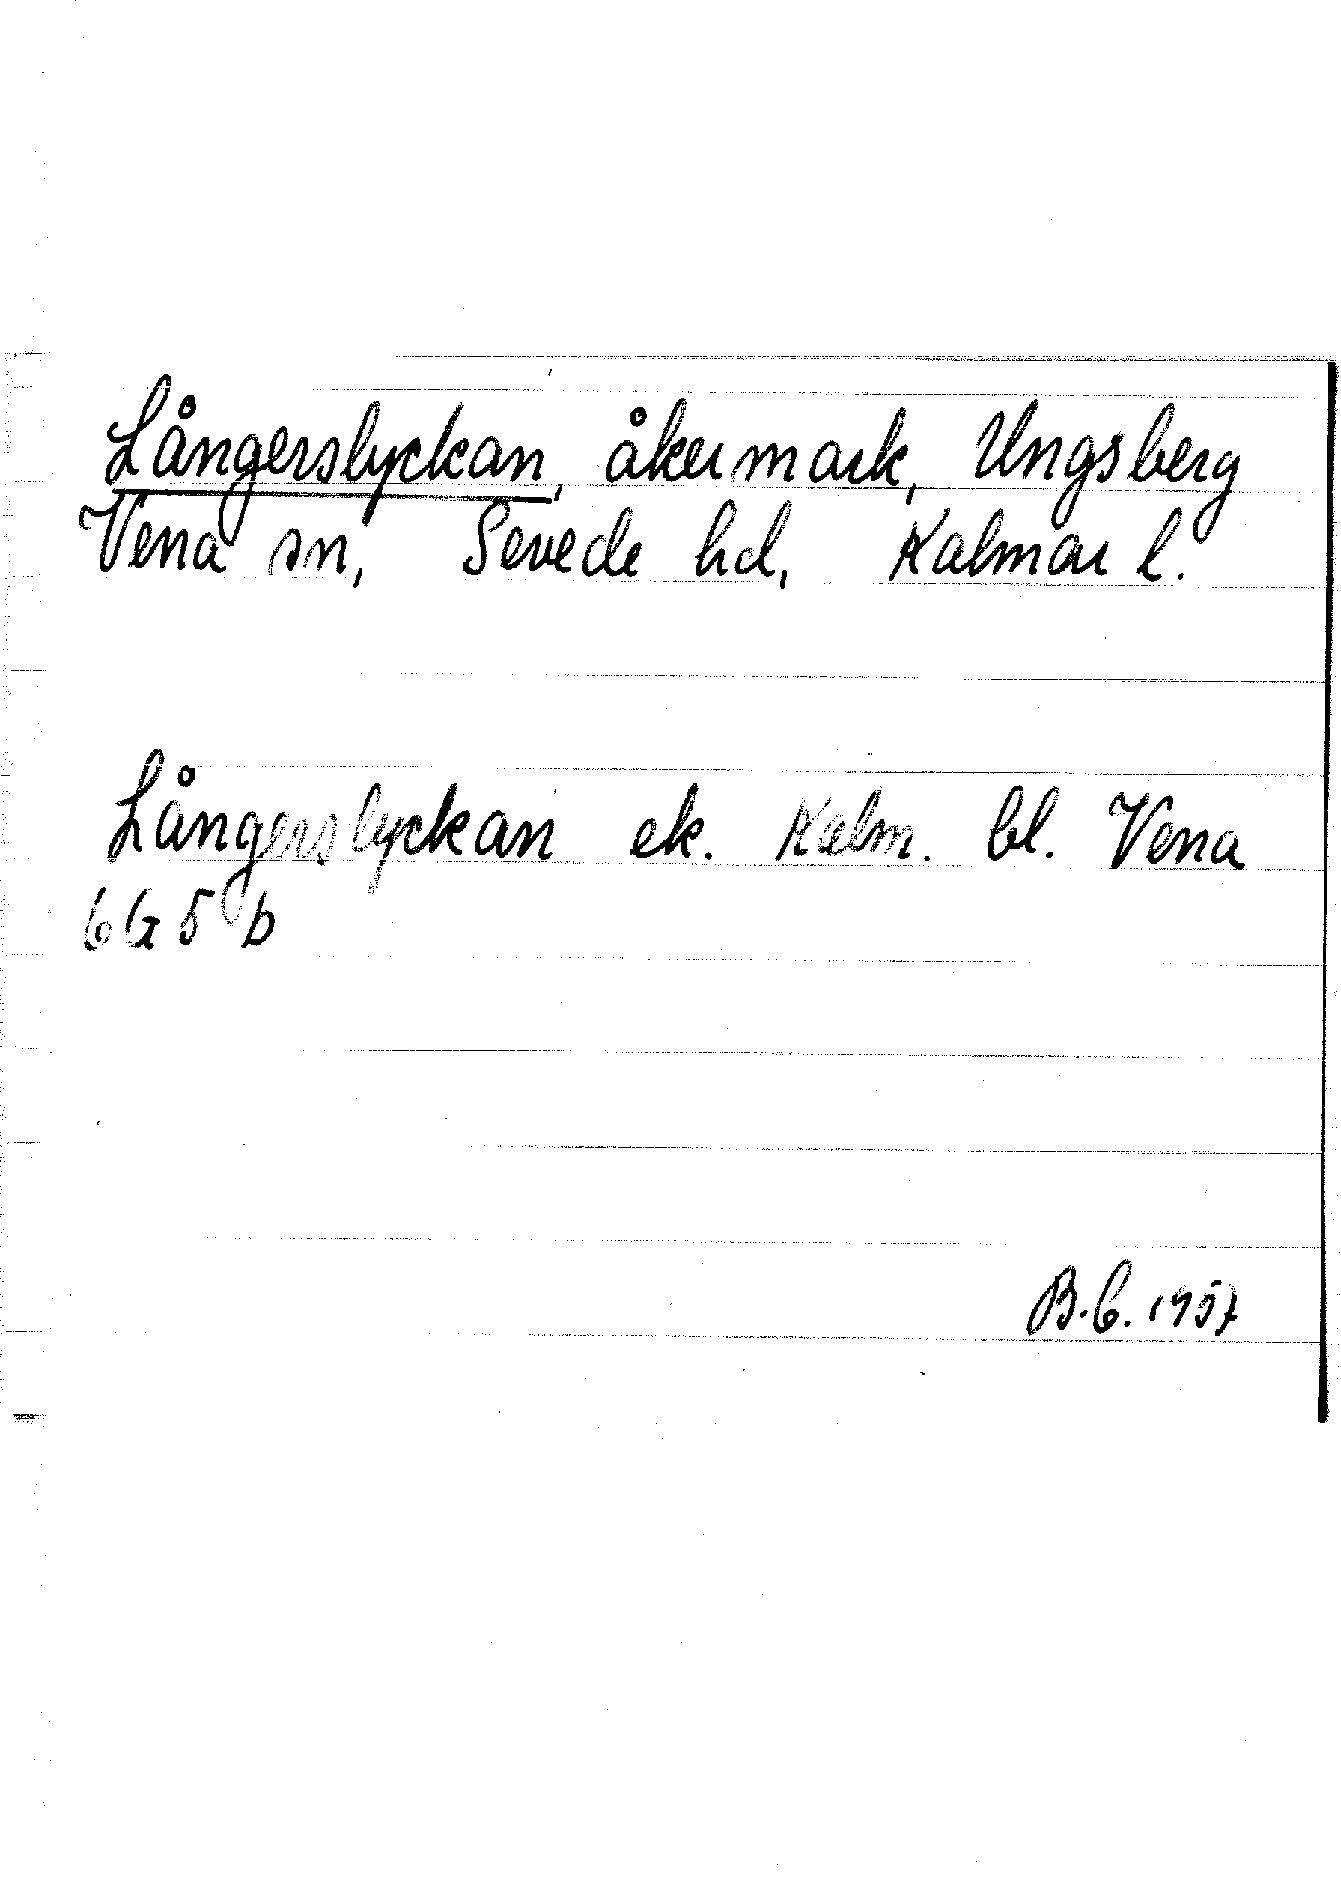 Långerslyckan, åkermark, Ungsberg
Vena sn, Sevede hd, Kalmar l.
Långerslyckan ek. Kalm. bl. Vena
6G5b
B.C. 1957